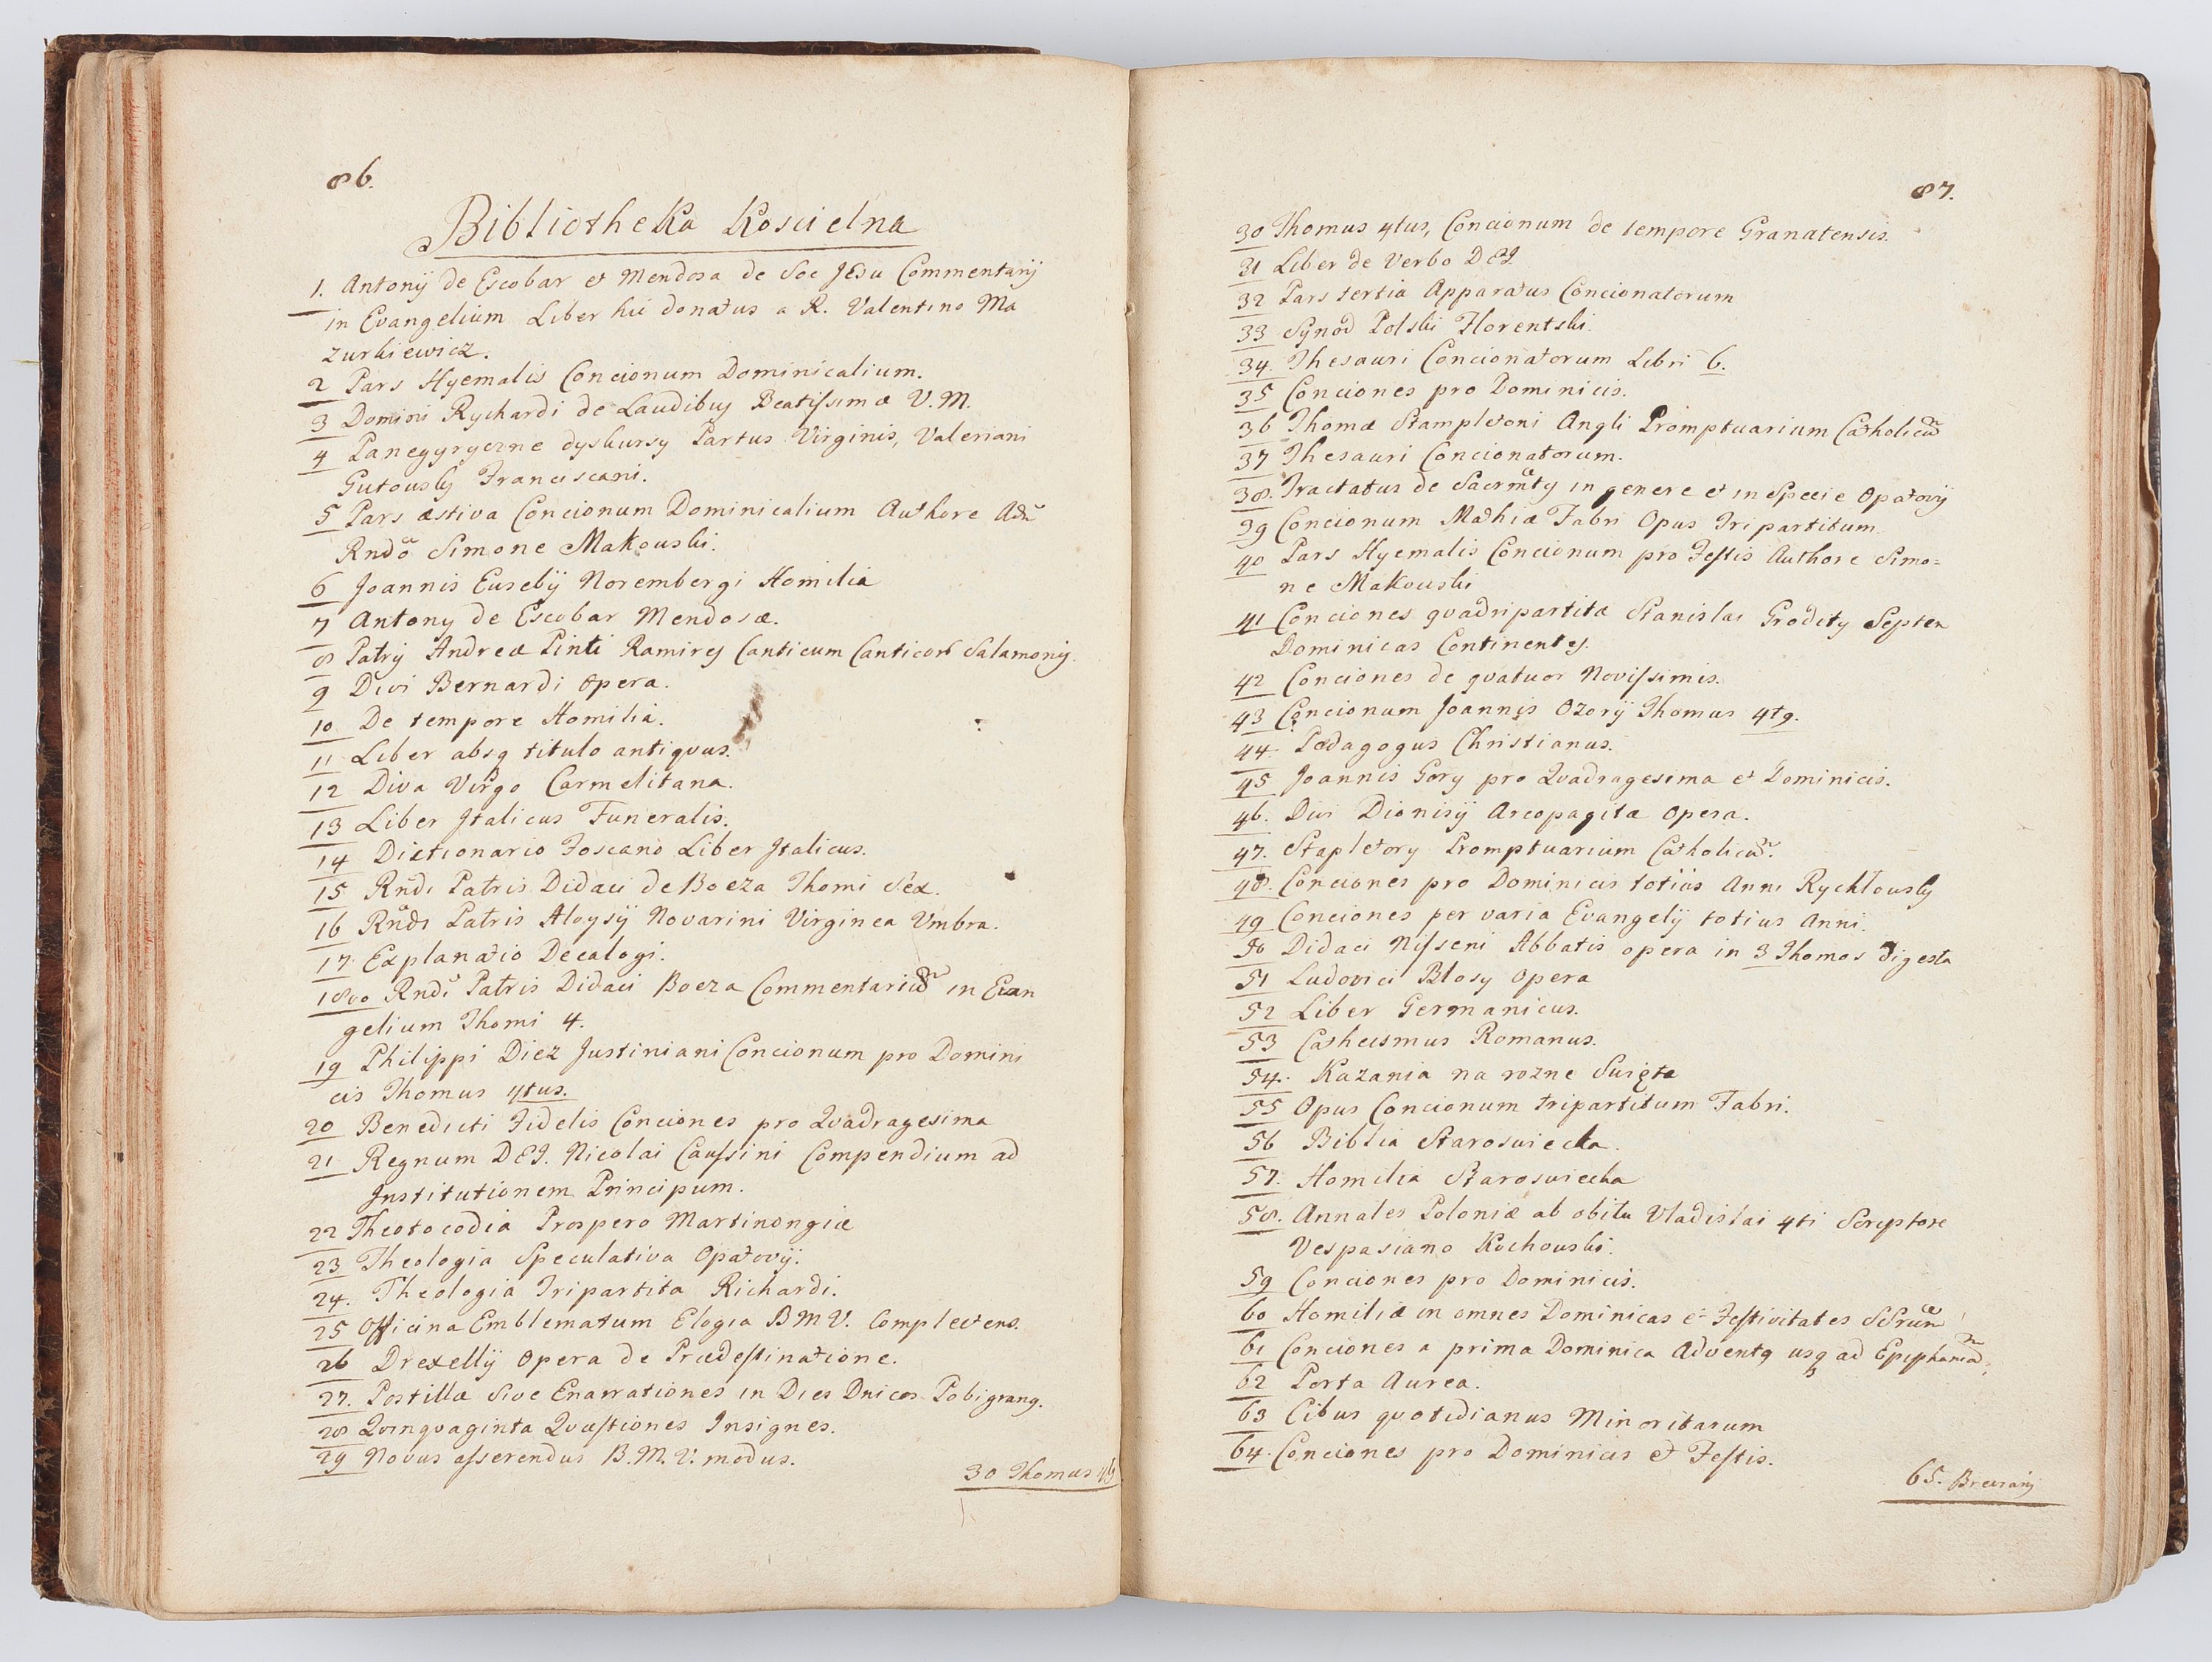 86.
Bibliotheka Koscielna
1. Antonij de Escobar et Mendosa de Soc JEsu Commentarij
in Evangelium Liber hic donatus a R. Valentino Ma
zurkiewicz.
2 Pars Hyemalis Concionum Dominicalium.
3 Domini Rychardi de Laudibus Beatissimæ V. M.
4 Panegyryczne dyskursy Partus Virginis, Valeriani
Gutowsky Franciscani.
5 Pars æstiva Concionum Dominicalium Authore Adm̃
Rndõ Simone Makowski.
6 Joannis Eusebij Norembergi Homilia
7 Antony de Escobar Mendosæ.
8 Patrij Andreæ Pinti Ramires Canticum Canticor Salamonis.
9 Divi Bernardi Opera.
10 De tempore Homilia.
11 Liber absq titulo antiquus.
12 Diva Virgo Carmelitana.
13 Liber Italicus Funeralis.
14 Dictionario Toscano Liber Italicus.
15 Rndi Patris Didaci de Boeza Thomi Sex.
16 Rndi Patris Aloysij Novarini Virginea Vmbra.
17 Explanatio Decalogi.
18vo Rndi Patris Didaci Boeza Commentariũ in Evan
gelium Thomi 4.
19 Philippi Diez Justiniani Concionum pro Domini
cis Thomus 4tus.
20 Benedicti Fidelis Conciones pro Quadragesima
21 Regnum DEI. Nicolai Caussini Compendium ad
Institutionem Principum.
22 Theotocodia Prospero Martinongiæ
23 Theologia Speculativa Opatovij.
24. Theologia Tripartita Richardi.
25 Officina Emblematum Elogia B M V. Complectens.
26 Drexellij Opera de Prædestinatione.
27. Postillæ Sive Enarrationes in Dies Dnicos Pobigrang.
28 Quinquaginta Quæstiones Insignes.
29 Novus asserendus B. M. V. modus.
30 Thomus 4tg
87.
30 Thomus 4tus, Concionum de tempore Granatensis.
31 Liber de Verbo DEI
32 Pars tertia Apparatus Concionatorum
33 Synod Polski Florentski.
34. Thesauri Concionatorum Libri 6.
35 Conciones pro Dominicis.
36 Thomæ Stampletoni Angli Promptuarium Catholicũ
37 Thesauri Concionatorum.
38. Tractatus de Sacrmtg in genere et in Specie Opatovij
39 Concionum Mathiæ Fabri Opus Tripartitum
40 Pars Hyemalis Concionum pro Festis Authore Simo=
ne Makowski
41 Conciones quadripartitæ Stanislai Grodity Septem
Dominicas Continentes.
42 Conciones de quatuor Novissimis.
43 Concionum Joannis Ozorij Thomus 4tg.
44. Pædagogus Christianus.
45 Joannis Gory pro Quadragesima et Dominicis.
46. Divi Dionisij Areopagitæ Opera.
47. Stapletory Promptuarium Catholicũ.
48. Conciones pro Dominicis totius Anni Rychlowsky
49 Conciones per varia Evangelij totius Anni.
50 Didaci Nisseni Abbatis opera in 3 Thomos digesta
51 Ludovici Blosy Opera
52 Liber Germanicus.
53 Cathecismus Romanus.
54. Kazania na rozne Swięta
55 Opus Concionum tripartitum Fabri.
56 Biblia Staroswiecka.
57. Homilia Staroswiecka
58. Annales Poloniæ ab obitu Vladislai 4ti Scriptore
Vespasiano Kochowski.
59 Conciones pro Dominicis.
60 Homiliæ in omnes Dominicas et Festivitates SSrum
61 Conciones a prima Dominica Adventg usq ad Epiphaniã
62 Porta Aurea.
63 Cibus quotidianus Minoritarum
64. Conciones pro Dominicis et Festis.
65. Breviarij